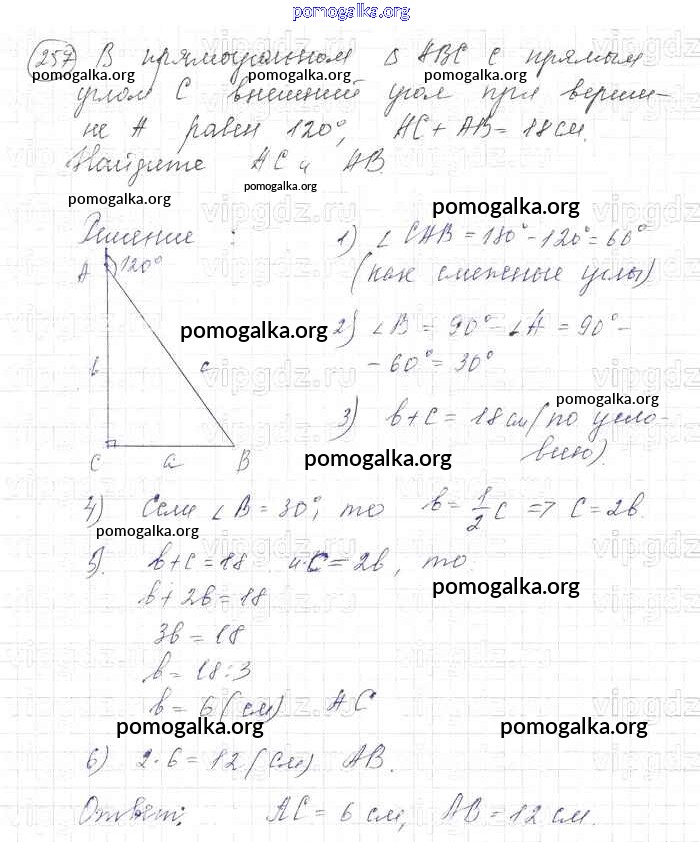 pomogalka.org
257 В прямоугольном Δ ABC с прямым
pomogalka.org pomogalka.org pomogalka.org
углом C внешний угол при верши-
не A равен 120°, AC + AB = 18 см.
Найдите AC и AB.
pomogalka.org
pomogalka.org pomogalka.org
Решение :
1) ∠ CAB = 180° - 120° = 60°
A 120°
(как смежные углы)
pomogalka.org
2) ∠ B = 90° - ∠ A = 90° -
- 60° = 30°
b c
pomogalka.org
3) b + c = 18 см (по усло-
вию).
C a B
pomogalka.org
4) Если ∠ B = 30°, то b = 1/2 c => c = 2b.
pomogalka.org
5). b + c = 18 и c = 2b, то
pomogalka.org
b + 2b = 18
3b = 18
b = 18 : 3
b = 6 (см) AC
pomogalka.org pomogalka.org
6) 2 · 6 = 12 (см) AB.
Ответ: AC = 6 см, AB = 12 см.